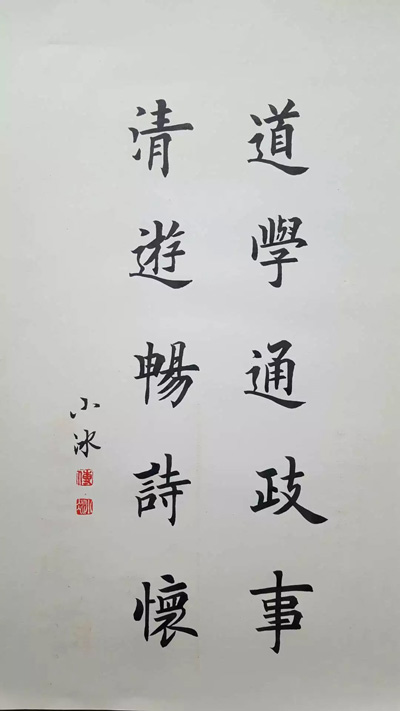 道學通政事
清遊暢詩懷
小冰